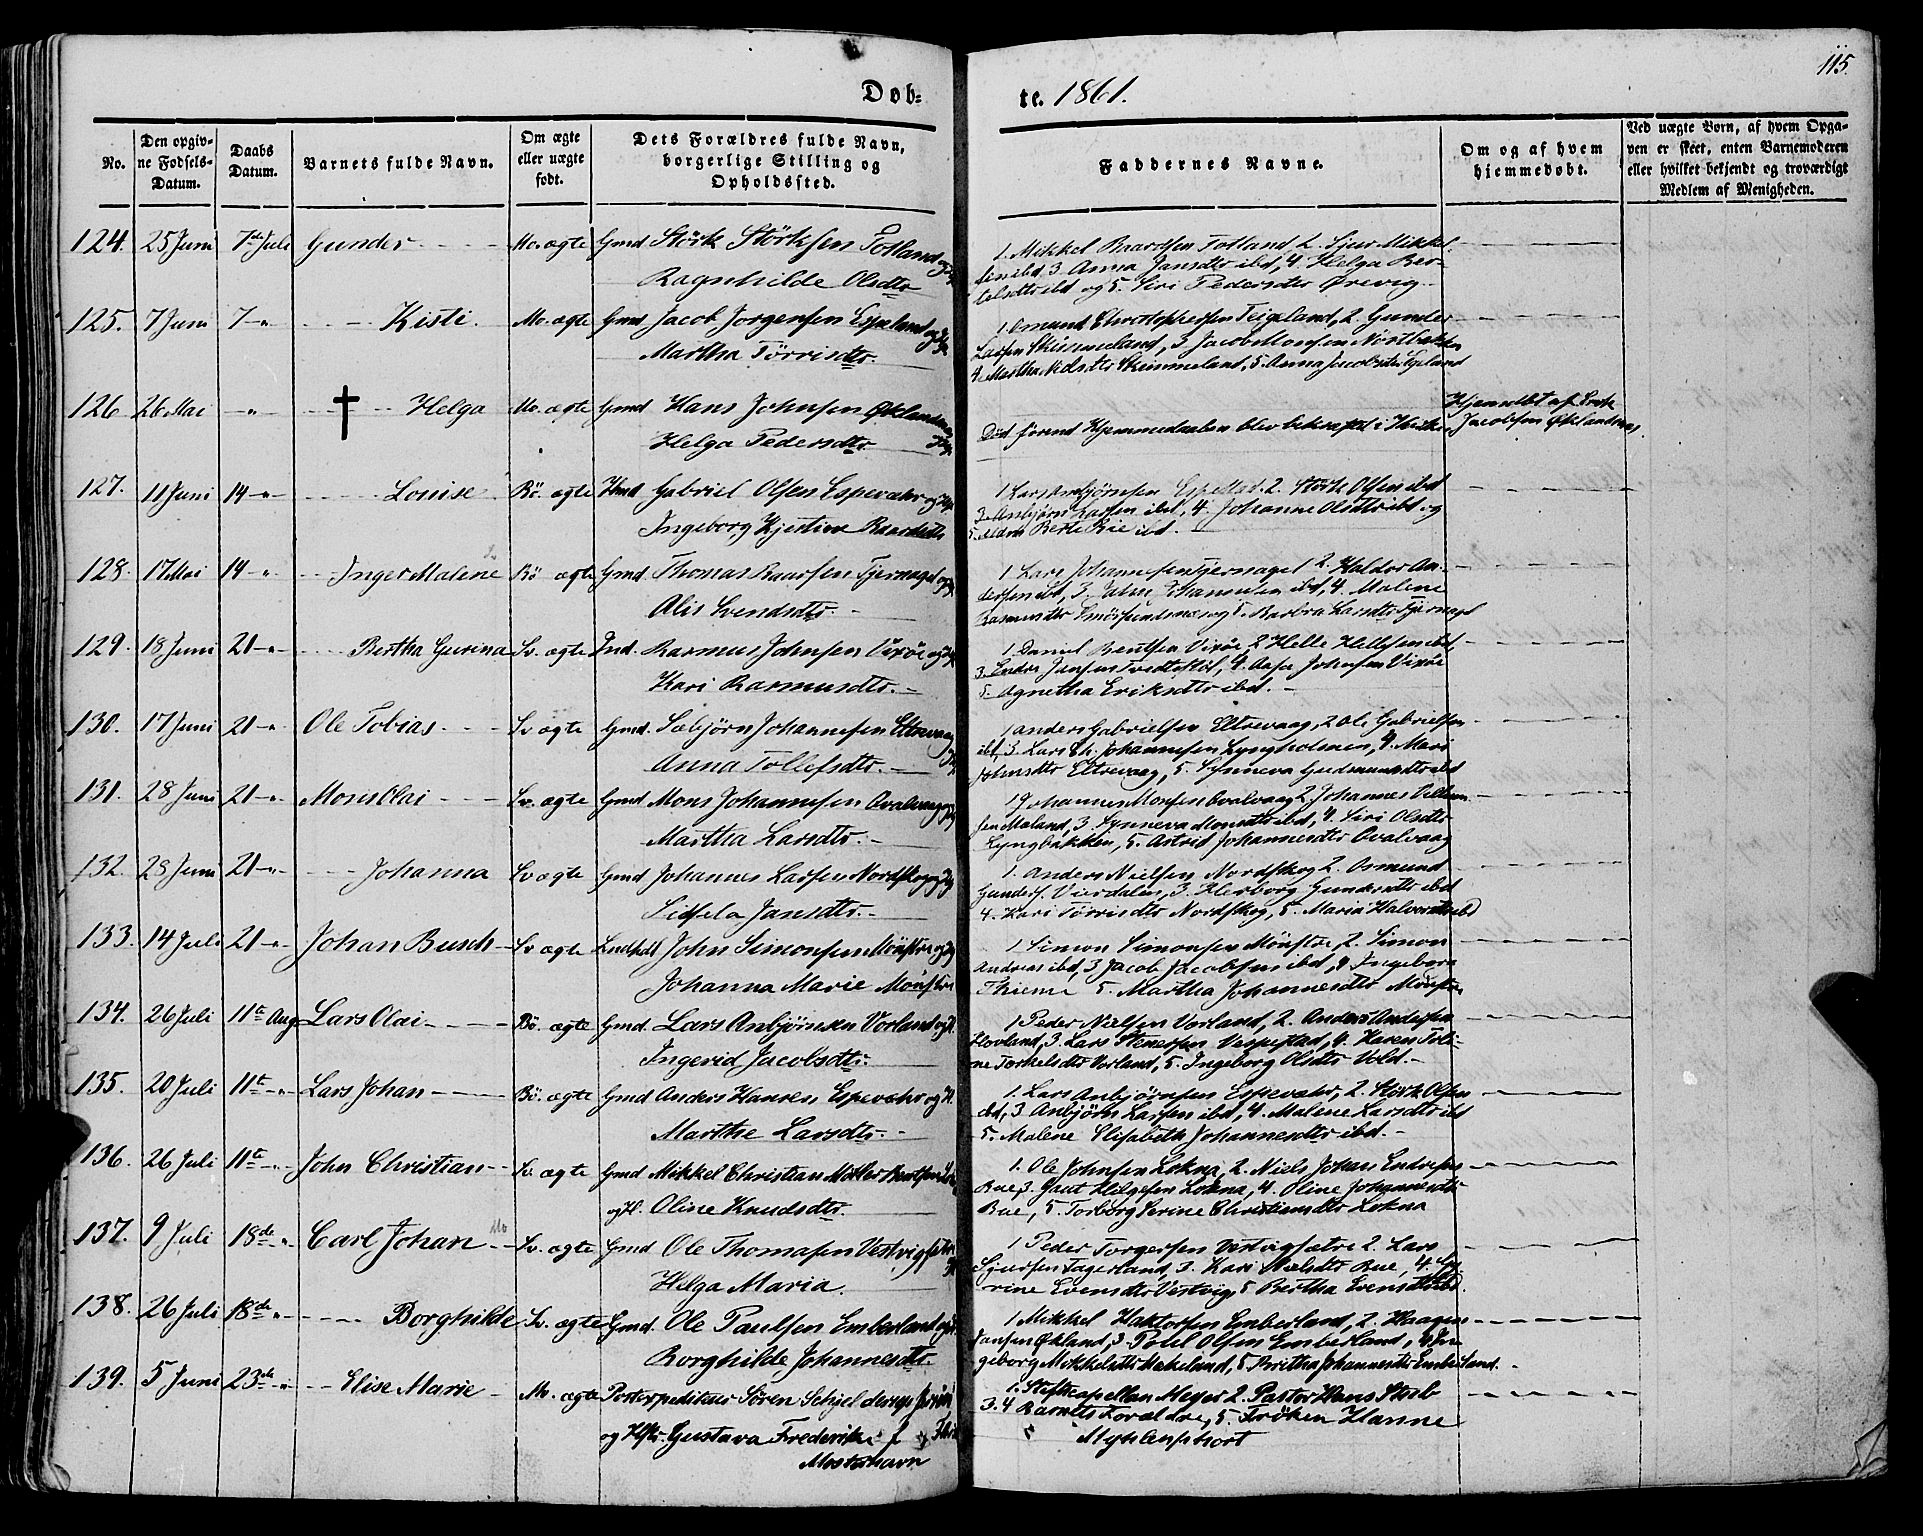 115.
Døb-
te. 1861.
No.
Den opgiv-
ne Fødsels-
Datum.
Daabs
Datum.
Barnets fulde Navn.
Om ægte
eller uægte
født.
Dets Forældres fulde Navn,
borgerlige Stilling og
Opholdssted.
Faddernes Navne.
Om og af hvem
hjemmedøbt.
Ved uægte Børn, af hvem Opga-
ven er skeet, enten Barnemoderen
eller hvilket bekjendt og troværdigt
Medlem af Menigheden.
124. 25 Juni 7de Juli Gunder Mo. ægte Gmd Størk Størksen Totland og
Ragnhilde Olsdtr
1. Mikkel Baardsen Totland 2. Sjur Mikkel-
sen ibd 3. Anna Jansdtr ibd, 4. Helga Ber-
telsdtr ibd og 5. Siri Pedersdtr Ørevig
125. 7 Juni 7 -"- Kisti. Mo. ægte Gmd Jacob Jørgensen Espeland og
Martha Tørrisdtr.
1. Omund Christophersen Teigeland, 2 Gunder
Larsen Skimmeland, 3 Jacob Monsen Nøstbakken
4. Martha Nilsdtr Skimmeland, 5. Anna Jacobsdtr
126 26 Mai -"- † Helga Mo. ægte Gmd Hans Johnsen Øklandsnæs
Helga Pedersdtr
Død førend Hjemmedaaben blev bekræftet i Kirken
Hjemmedøbt af Erik
Jacobsen Øklandsnæs
127. 11 Juni 14 -"- Louise Bø. ægte Hmd Gabriel Olsen Espevær og
Ingeborg Kjestine Baardsdtr
1 Lars Anbjørnsen Espestad. 2. Størk Olsen ibd
3. Anbjørn Larsen ibd, 4. Johanne Olsdtr ibd og
5. Madm Berte Rie ibd.
128. 17 Mai 14 -"- Inger Malene Bø ægte Gmd. Thomas Baarsen Tjernagel og
Alis Svendsdtr.
1. Lars Johannesen Tjernagel 2. Haldor An-
dersen ibd, 3. Johannesen ibd, 4. Malene
Rasmusdtr Smørsundsnæs og 5. Barbra Larsdtr Tjernagel
129. 18 Juni 21 -"- Bertha Gurina Sv. ægte Ind. Rasmus Johnsen Vixøe og
Kari Rasmusdtr.
1. Daniel Bentsen Vixøe 2 Helle Hellesen ibd,
3. Endre Jansen Tvedtestøl, 4. Johnsen Vixøe
5. Agnetha Eriksdtr ibd.
130. 17 Juni 21 -"- Ole Tobias Sv ægte Gmd. Sæbjørn Johannesen Eltrevaag
Anna Tollefsdtr.
1 Anders Gabrielsen Eltrevaag, 2 Ole Gabrielsen
ibd, 3. Lars Ch. Johannesen Lyngholmen, 4. Mari
Johnsdtr Eltrevaag, 5. Synneva Gudmundsdtr ibd
131. 28 Juni 21 -"- Mons Olai Sv. ægte Gmd Mons Johannesen Qvalvaag
Martha Larsdtr.
1 Johannes Monsen Qvalvaag 2 Johannes Villum-
sen Meland, 3. Synneva Monsdtr ibd, 4. Siri Olsdtr
Lyngbakken, 5. Astrid Johannesdtr Qvalvaag
132. 28 Juni 21 -"- Johanna Sv ægte Gmd Johannes Larsen Nordskog
Sidsela Jansdtr.
1. Anders Nielsen Nordskog 2. Osmund
Gunders. Vierdalen, 3. Herborg Gundersdtr ibd
4. Kari Tørrisdtr Nordskog, 5. Maria Halvorsdtr ibd
133. 14 Juli 21 -"- Johan Busch Sv ægte Landhdl John Simonsen Mønstre
Johanna Marie Mønstre
1 Simon Simonsen Mønstre, 2. Simon
Andreas ibd, 3 Jacob Jacobsen ibd, 4 Ingeborg
Thieme 5. Martha Johannesdtr Mønstre
134. 26 Juli 11te Aug Lars Olai Bø. ægte Gmd. Lars Anbjørnsen Vorland og H.
Ingerid Jacobsdtr.
1 Peder Nielsen Vorland, 2. Anders Andersen
Hovland, 3. Lars Stenersen Vespestad, 4. Karen Toli-
ne Torkelsdtr Vorland, 5. Ingeborg Olsdtr Vold.
135. 20 Juli 11te -"- Lars Johan Bø. ægte Gmd Anders Hansen Espevær og H.
Marthe Larsdtr.
1. Lars Anbjørnsen Espevær, 2. Størk Olsen
ibd, 3 Anbjørn Larsen ibd, 4. Malene Larsdtr ibd
5. Malene Elisabeth Johannesdtr ibd.
136. 26 Juli 11te -"- John Christian Sv. ægte Gmd Mikkel Christian Møller
og H. Oline Knudsdtr.
1. Ole Johnsen Lokna, 2. Niels Johan Endresen
Bue, 3. Gaut Helgesen Lokna, 4. Oline Johannesdtr
Bue, 5. Torborg Serine Christiansdtr Lokna
137. 9 Juli 18de -"- Carl Johan Sv. ægte Gmd Ole Thomasen Vestvigsætre
Helga Maria.
1 Peder Torgersen Vestvigsætre 2. Lars
Sjursen Fagerland, 3. Kari Nielsdtr Bue, 4. Se-
rine Evensdtr Vestvig, 5 Bertha Evensdtr ibd.
138. 26 Juli 18de -"- Borghilde Sv. ægte Gmd. Ole Paulsen Emberland
Borghilde Johannesdtr.
1 Mikkel Haktorsen Emberland, 2. Haagen
Jansen Økland, 3. Potel Olsen Emberland, 4 In-
geborg Mikkelsdtr Mekeland, 5 Britha Johannesdtr Emberland.
139. 5 Juni 23de -"- Elise Marie Mo. ægte Postexpediteur Søren Schjelderup
og Hstr. Gustava Frederikke
Mosterhavn
1. Stiftscapellan Meyer 2. Pastor Hans Stub
3. 4 Barnets Forældre, 5. Frøken Hanne
Myhlenphort